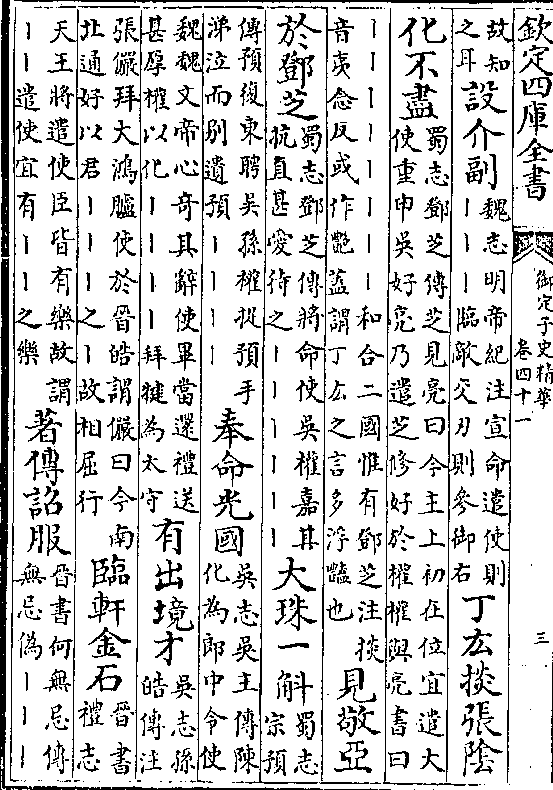 欽定四庫全書
御定子史精華
卷四十一
三
故知
之耳
設介副
魏志明帝紀注宣命遣使則
｜｜｜臨敵交刃則參御右
丁厷掞張陰
化不盡
蜀志鄧芝傳芝見亮曰今主上初在位宜遣大
使重申吳好亮乃遣芝修好於權權與亮書曰
｜｜｜｜｜｜｜｜和合二國惟有鄧芝注掞
音夷念反或作艷蓋謂丁厷之言多浮豔也
見敬亞
於鄧芝
蜀志鄧芝傳將命使吳權嘉其
抗直甚愛待之｜｜｜｜｜
大珠一斛
蜀志
宗預
傳預復東聘吳孫權捉預手
涕泣而別遺預｜｜｜｜
奉命光國
吳志吳主傳陳
化為郎中令使
魏魏文帝心奇其辭使畢當還禮送
甚厚權以化｜｜｜｜拜犍為太守
有出境才
吳志孫
皓傳注
張儼拜大鴻臚使於晉皓謂儼曰今南
北通好以君｜｜｜之｜故相屈行
臨軒金石
晉書
禮志
天王將遣使臣皆有樂故謂
｜｜遣使宜有｜｜之樂
著傳詔服
晉書何無忌傳
無忌偽｜｜｜